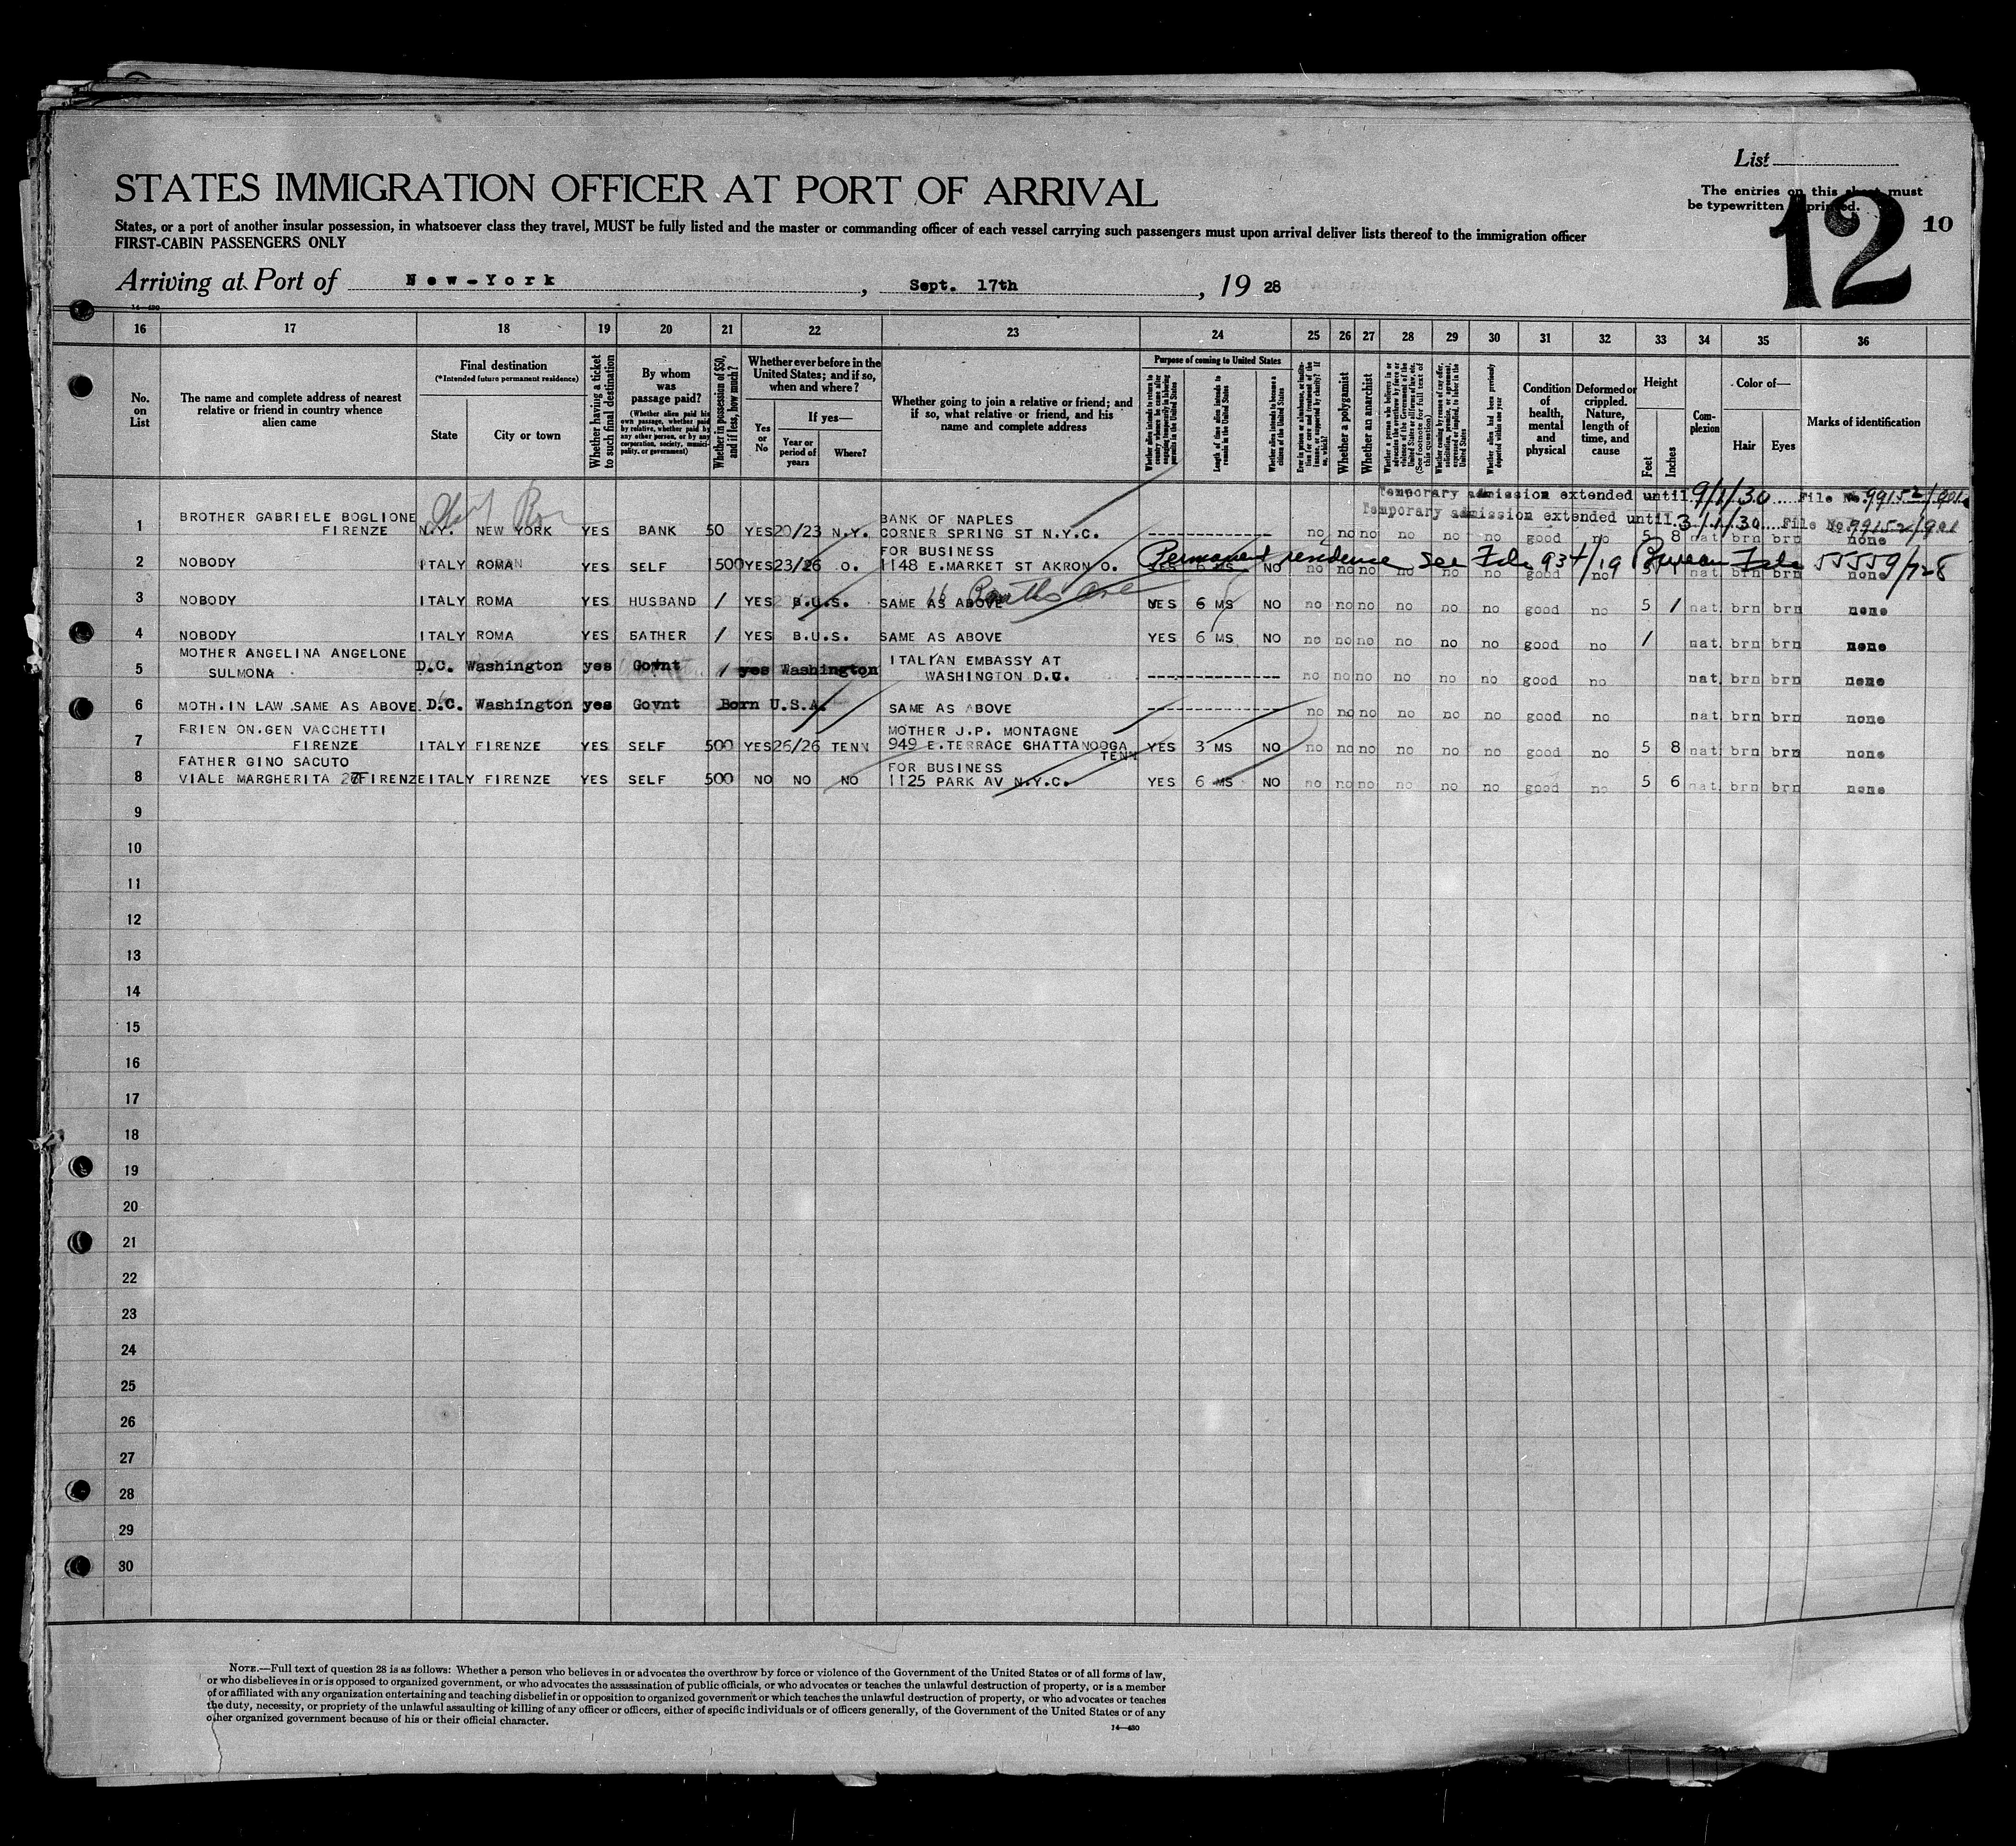 List
The entries on this sheet must
be typewritten or printed.
12
10
STATES IMMIGRATION OFFICER AT PORT OF ARRIVAL
States, or a port of another insular possession, in whatsoever class they travel, MUST be fully listed and the master or commanding officer of each vessel carrying such passengers must upon arrival deliver lists thereof to the immigration officer
FIRST-CABIN PASSENGERS ONLY
Arriving at Port of New-York, Sept. 17th, 19 28
14—430
16 17 18 19 20 21 22 23 24 25 26 27 28 29 30 31 32 33 34 35 36
No.
on
List
The name and complete address of nearest
relative or friend in country whence
alien came
Final destination
(*Intended future permanent residence)
State
City or town
Whether having a ticket
to such final destination
By whom
was
passage paid?
(Whether alien paid his
own passage, whether paid
by relative, whether paid by
any other person, or by any
corporation, society, munici-
pality, or government)
Whether in possession of $50,
and if less, how much?
Whether ever before in the
United States; and if so,
when and where?
Yes
or
No
If yes—
Year or
period of
years
Where?
Whether going to join a relative or friend; and
if so, what relative or friend, and his
name and complete address
Purpose of coming to United States
Whether alien intends to return to
country whence he came after
engaging temporarily in laboring
pursuits in the United States
Length of time alien intends to
remain in the United States
Whether alien intends to become a
citizen of the United States
Whether a polygamist
Whether an anarchist
Whether alien had been previously
deported within one year
Condition
of
health,
mental
and
physical
Deformed or
crippled.
Nature,
length of
time, and
cause
Height
Feet
Inches
Com-
plexion
Color of—
Hair
Eyes
Marks of identification
Temporary admission extended until 9/1/30 File No. 99152/901
Temporary admission extended until 3/1/30 File No. 99152/901
1 BROTHER GABRIELE BOGLIONE
FIRENZE N.Y. NEW YORK YES BANK 50 YES 20/23 N.Y. BANK OF NAPLES
CORNER SPRING ST N.Y.C. ------------- no no no no no no good no 5 8 nat brn brn none
2 NOBODY ITALY ROMA YES SELF 1500 YES 23/26 O. FOR BUSINESS
1148 E.MARKET ST AKRON O. YES 6 MS NO no no no no no no good no nat brn brn none
Permanent residence See File 934/19 Bureau File 55559/728
3 NOBODY ITALY ROMA YES HUSBAND / YES B.U.S. SAME AS ABOVE YES 6 MS NO no no no no no no good no 5 1 nat brn brn none
4 NOBODY ITALY ROMA YES FATHER / YES B.U.S. SAME AS ABOVE YES 6 MS NO no no no no no no good no 1 nat brn brn none
5 MOTHER ANGELINA ANGELONE
SULMONA D.C. Washington yes Govnt / yes Washington ITALIAN EMBASSY AT
WASHINGTON D.C. ------------- no no no no no no good no nat. brn brn none
6 MOTH.IN LAW SAME AS ABOVE D.C. Washington yes Govnt Born U.S.A. SAME AS ABOVE ------------- no no no no no no good no nat brn brn none
7 FRIEN ON.GEN VACCHETTI
FIRENZE ITALY FIRENZE YES SELF 500 YES 26/26 TENN MOTHER J.P. MONTAGNE
949 E.TERRACE CHATTANOOGA
TENN YES 3 MS NO no no no no no no good no 5 8 nat brn brn none
8 FATHER GINO SACUTO
VIALE MARGHERITA 27 FIRENZE ITALY FIRENZE YES SELF 500 NO NO NO FOR BUSINESS
1125 PARK AV N.Y.C. YES 6 MS NO no no no no no no good no 5 6 nat. brn brn none
9
10
11
12
13
14
15
16
17
18
19
20
21
22
23
24
25
26
27
28
29
30
NOTE.—Full text of question 28 is as follows: Whether a person who believes in or advocates the overthrow by force or violence of the Government of the United States or of all forms of law,
or who disbelieves in or is opposed to organized government, or who advocates the assassination of public officials, or who advocates or teaches the unlawful destruction of property, or is a member
of or affiliated with any organization entertaining and teaching disbelief in or opposition to organized government or which teaches the unlawful destruction of property, or who advocates or teaches
the duty, necessity, or propriety of the unlawful assaulting or killing of any officer or officers, either of specific individuals or of officers generally, of the Government of the United States or of any
other organized government because of his or their official character.
14—430